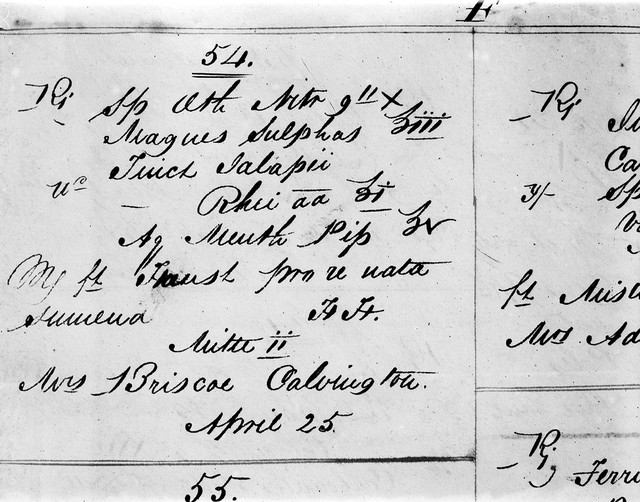 F
54.
Rx Sp Æth Nitr gtt x
Magnes Sulphas ʒiii
Tinct Jalapii
Rhei aa ʒi
Aq Menth Pip ℥v
My ft Haust pro re nata
Sumend
Mitte ii
Mrs Briscoe Calvington.
April 25.
55.
Rx
Ca
Sp
ft Mist
Mrs Ad
Rx Ferri